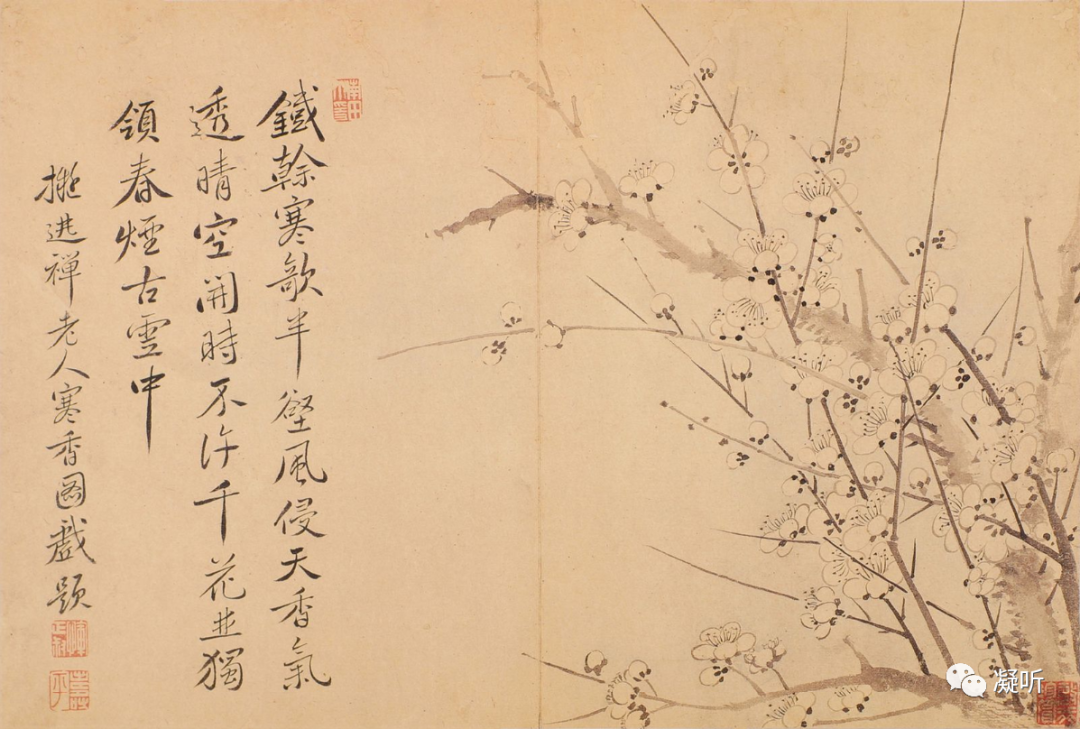 鐵榦寒欹半壁風侵天香氣
透晴空開時不許千花並獨
領春煙古雪中
擬逃禪老人寒香圖戲題
凝听